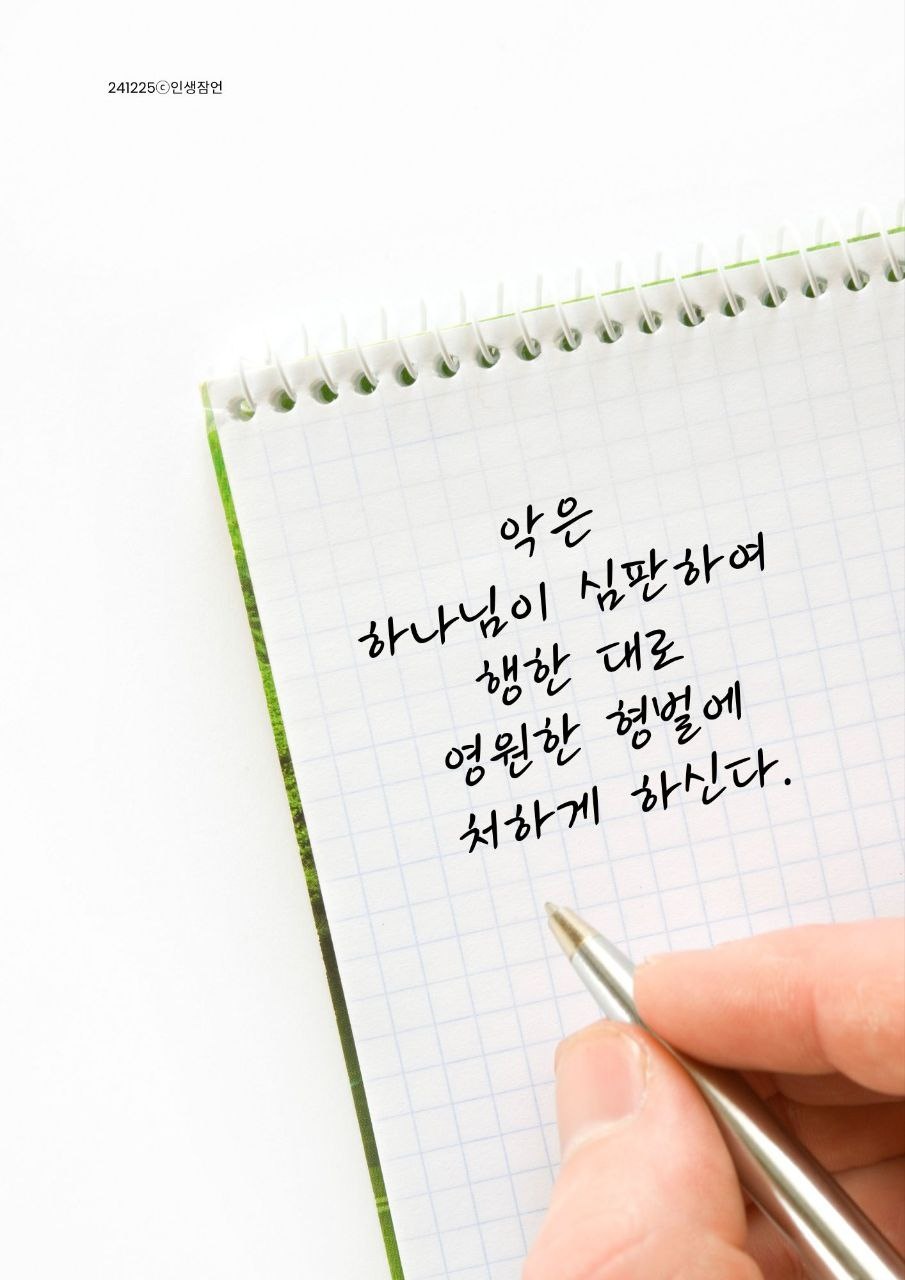 241225ⓒ인생잠언
악은
하나님이 심판하여
행한 대로
영원한 형벌에
처하게 하신다.